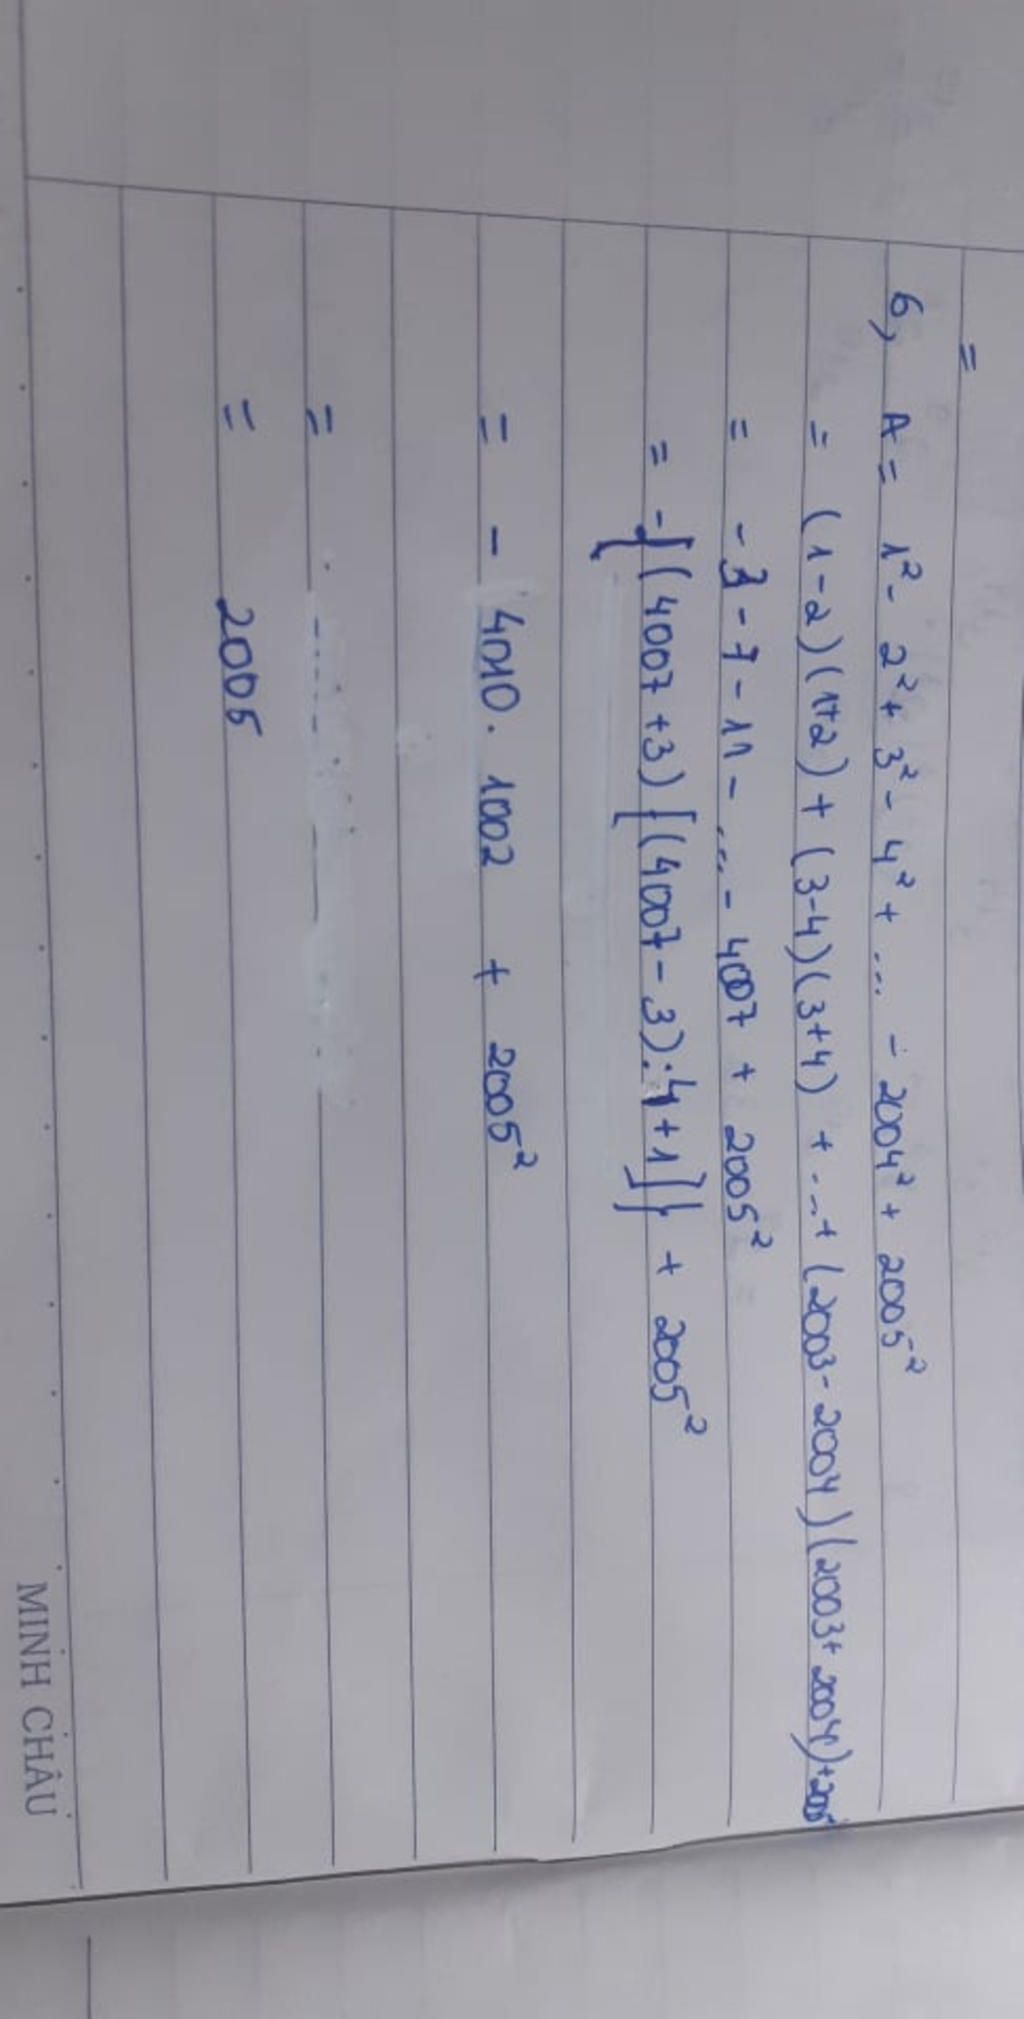 =
6, A = 1² - 2² + 3² - 4² + ... - 2004² + 2005²
= (1-2)(1+2) + (3-4)(3+4) + ... + (2003-2004)(2003+2004)+2005²
= -3 - 7 - 11 - ... - 4007 + 2005²
= -{(4007+3)[(4007-3):4+1]} + 2005²
= - 4010. 1002 + 2005²
=
= 2005
MINH CHÂU